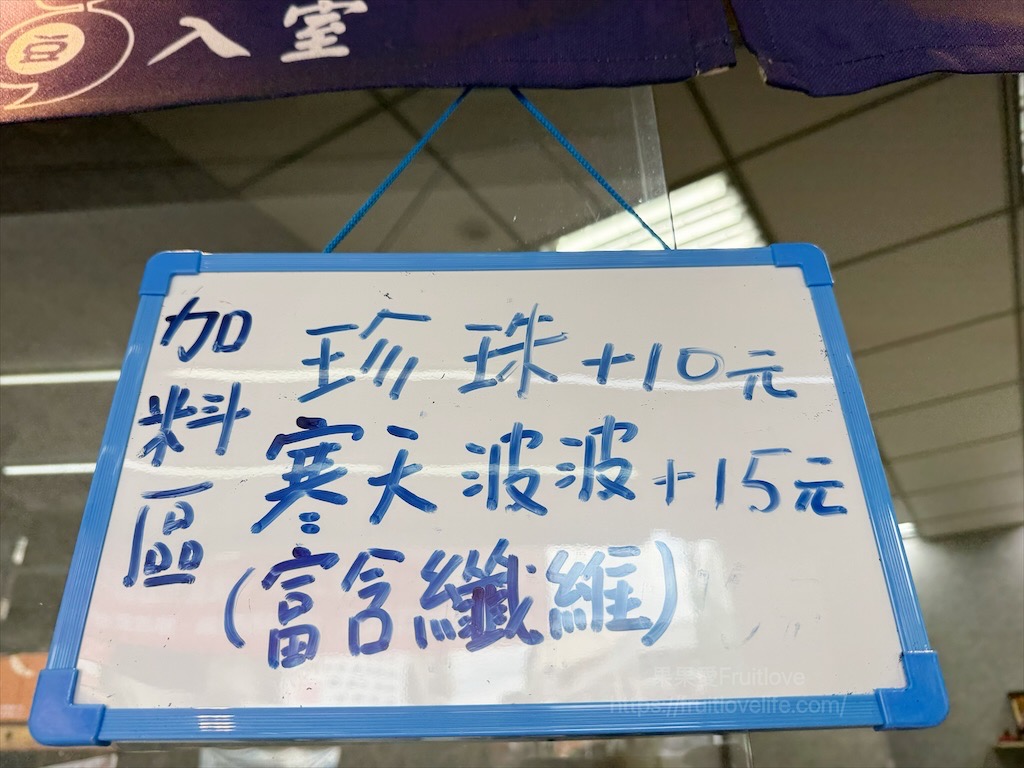 豆入室
加料區
珍珠+10元
寒天波波+15元
(富含纖維)
果果愛Fruitlove
https://fruitlovelife.com/